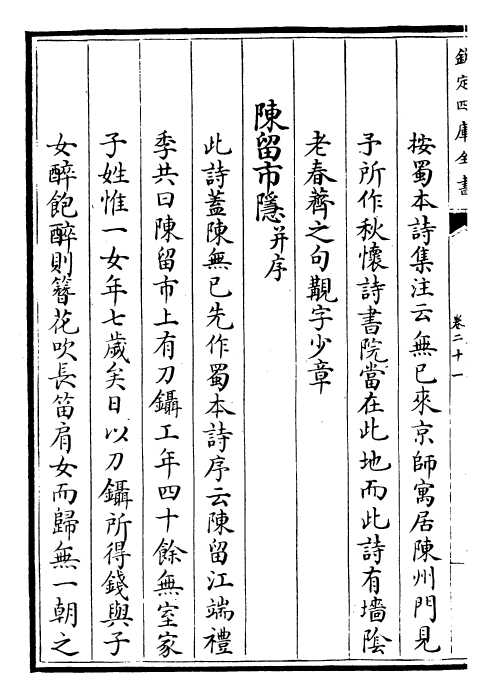 欽定四庫全書
卷二十一
按蜀本詩集注云無已來京師寓居陳州門見
予所作秋懷詩書院當在此地而此詩有墻陰
老春薺之句覯字少章
陳留市隱并序
此詩蓋陳無已先作蜀本詩序云陳留江端禮
季共曰陳留市上有刀鑷工年四十餘無室家
子姓惟一女年七歲矣日以刀鑷所得錢與子
女醉飽醉則簪花吹長笛肩女而歸無一朝之